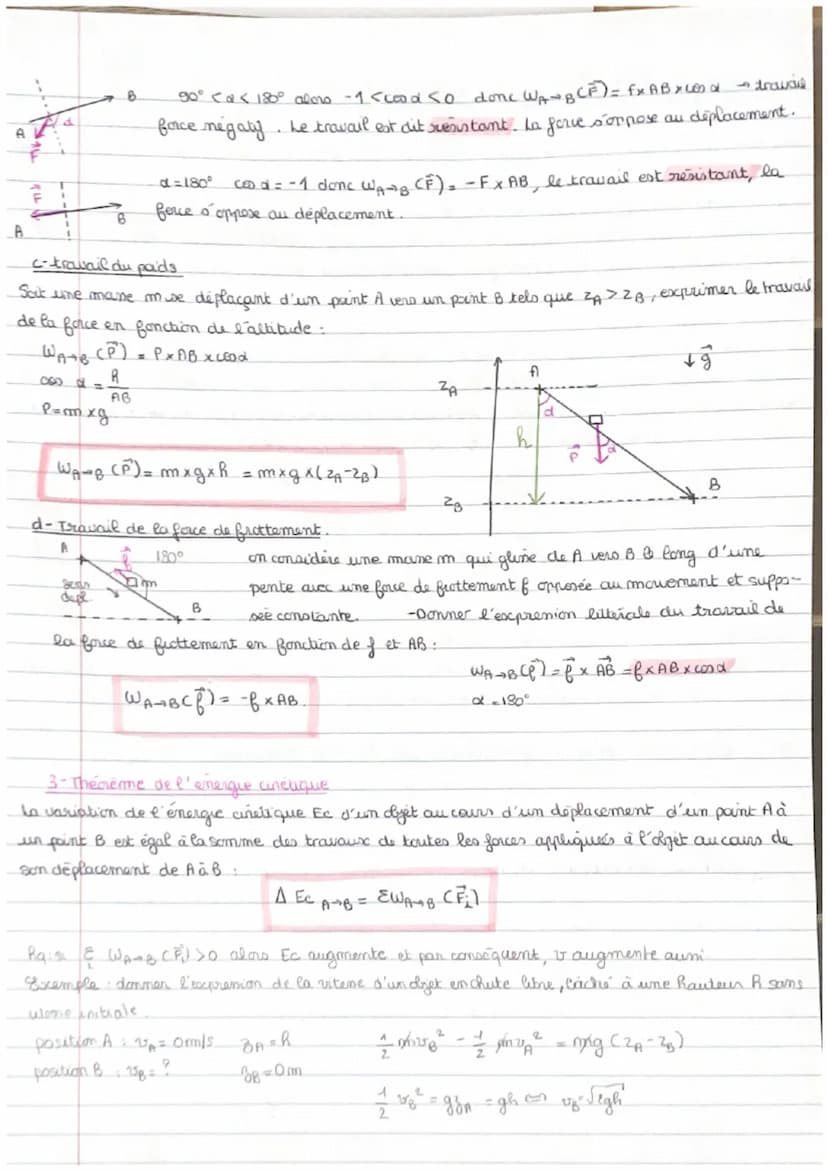 90° < α < 180° alors -1 < cos α < 0 donc W A→B (F⃗) = F x AB x cos α → travail
force négatif. Le travail est dit résistant. La force s'oppose au déplacement.
B
A
α
F⃗
α = 180° cos α = -1 donc W A→B (F⃗) = -F x AB, le travail est résistant, la
force s'oppose au déplacement.
F⃗
B
A
c- travail du poids
Soit une masse m se déplaçant d'un point A vers un point B tels que zA > zB, exprimer le travail
de la force en fonction de l'altitude :
W A→B (P⃗) = P x AB x cos α
cos α = h / AB
P = m x g
W A→B (P⃗) = m x g x h = m x g x (zA - zB)
zA
A
g⃗
α
h
P⃗
α
B
zB
d- Travail de la force de frottement.
A
f⃗
180°
m
sens depl
B
on considère une masse m qui glisse de A vers B le long d'une
pente avec une force de frottement f opposée au mouvement et suppo-
sée constante. -Donner l'expression littérale du travail de
la force de frottement en fonction de f et AB :
W A→B (f⃗) = f⃗ x AB⃗ = f x AB x cos α
W A→B (f⃗) = -f x AB.
α = 180°
3- Théorème de l'énergie cinétique
La variation de l'énergie cinétique Ec d'un objet au cours d'un déplacement d'un point A à
un point B est égal à la somme des travaux de toutes les forces appliqués à l'objet au cours de
son déplacement de A à B :
Δ Ec A→B = ΣW A→B (F⃗i)
Rq : si Σ W A→B (F⃗i) > 0 alors Ec augmente et par conséquent, v augmente aussi
Exemple : donner l'expression de la vitesse d'un objet en chute libre, à une hauteur h sans
initiale.
position A : vA = 0 m/s zA = h 1/2 m vB² - 1/2 m vA² = mg (zA - zB)
position B : vB = ? zB = 0 m
1/2 vB² = gzA = gh ⇔ vB = √2gh